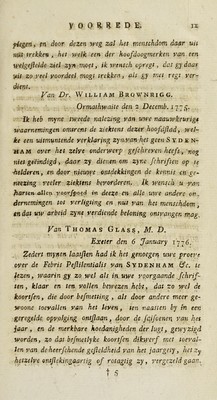 VOORREDE. 12
plegen, en door dezen weg zal het menschdom daar uit
nut trekken, het welk een der hoofdoogmerken van een
welgestelde ziel zyn moet, ik wensch opregt, dat gy daar
uit zo veel voordeel moogt trekken, als gy met regt ver-
dient.
Van Dr. WILLIAM BROWNRIGG.
Ormathwaite den 2 Decemb. 1775.
Ik heb myne tweede nalezing van uwe naauwkeurige
waarnemingen omtrent de ziektens dezer hoofdstad, wel-
ke een uitmuntende verklaring zyn van het geen SYDEN-
HAM over het zelve onderwerp geschreven heeft, nog
niet geëindigd, daar zy dienen om zyne schriften op te
helderen, en door nieuwe ontdekkingen de kennis en ge-
nezing veeler ziektens bevorderen. Ik wensch u van
harten allen voorspoed in deze en alle uwe andere on-
dernemingen tot verligting en nut van het menschdom,
en dat uw arbeid zyne verdiende beloning ontvangen mag.
Van THOMAS GLASS, M. D.
Exeter den 6 January 1776.
Zedert mynen laatsten had ik het genoegen uwe proeve
over de Febris Pestilentialis van SYDENHAM &c. te
lezen, waarin gy zo wel als in uwe voorgaande schrif-
ten, klaar en ten vollen bewezen hebt, dat zo wel de
koortsen, die door besmetting, als door andere meer ge-
woone toevallen van het leven, ten naasten by in een
geregelde opvolging ontstaan, door de saisoenen van het
jaar, en de merkbare hoedanigheden der lugt, gewyzigd
worden, zo dat besmetlyke koortsen dikwerf met toeval-
len van de heerschende gesteldheid van het jaargety, het zy
hetzelve ontstekingaartig of rotagtig zy, vergezeld gaan.
† 5